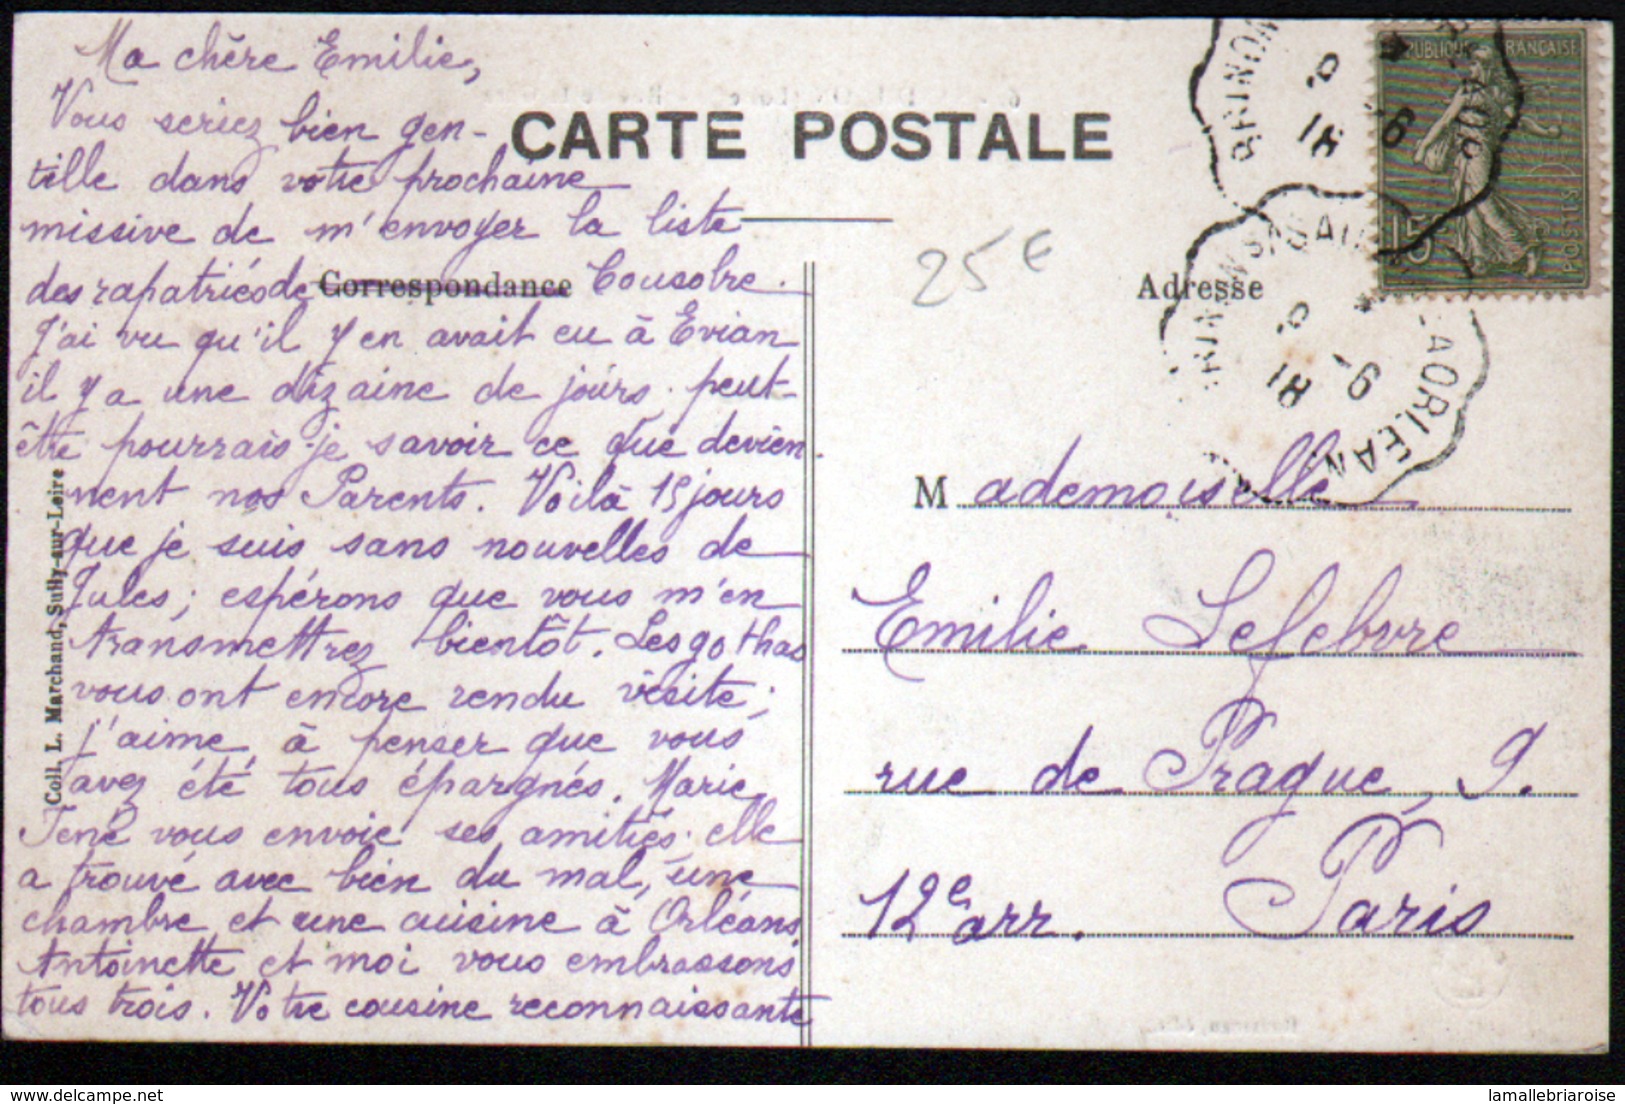 Ma chère Emilie,
Vous seriez bien gen-
tille dans votre prochaine
missive de m'envoyer la liste
des rapatriés de Correspondance Cousolre.
J'ai vu qu'il y en avait eu à Evian
il y a une dizaine de jours. peut-
être pourrais-je savoir ce que devien
nent nos Parents. Voilà 15 jours
que je suis sans nouvelles de
Jules; espérons que vous m'en
transmettrez bientôt. Les gothas
vous ont encore rendu visite;
j'aime à penser que vous
avez été tous épargnés. Marie
René vous envoie ses amitiés; elle
a trouvé avec bien du mal, une
chambre et une cuisine à Orléans
Antoinette et moi vous embrassons
tous trois. Votre cousine reconnaissante
Coll. L. Marchand, Sully-sur-Loire
CARTE POSTALE
25 €
Adresse
RÉPUBLIQUE FRANÇAISE
15c
POSTES
18
9-6
18
9-
A ORLEANS
Mademoiselle
Emilie Lefebvre
rue de Prague, 9.
12e arr. Paris
delcampe.net
lamallebriaroise